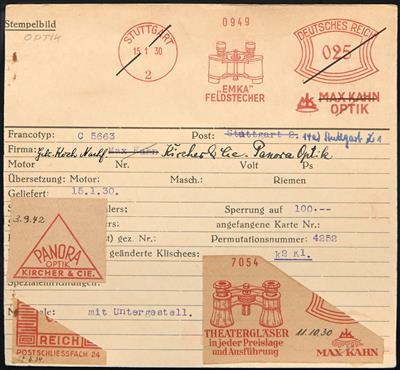 0949
Stempelbild
OPTIK
STUTTGART
15.1.30
2
DEUTSCHES REICH
025
„EMKA"
FELDSTECHER
MAX KAHN
OPTIK
Francotyp: C 5663 Post: Stuttgart 2. Stuttgart
Firma: Koch Nachf. Max Kahn Kircher & Cie. Panora Optik
Motor Nr. Volt Ps
Übersetzung: Motor: Masch.: Riemen
Geliefert: 15.1.30.
Sperrung auf 100.--
angefangene Karte Nr.:
gez. Nr.: Permutationsnummer: 4252
geänderte Klischees: k2 Kl.
3.9.42
PANORA
OPTIK
KIRCHER & CIE.
mit Untergestell.
REICH
POSTSCHLIESSFACH 24
7054
THEATERGLÄSER
in jeder Preislage
und Ausführung
11.10.30
MAX KAHN